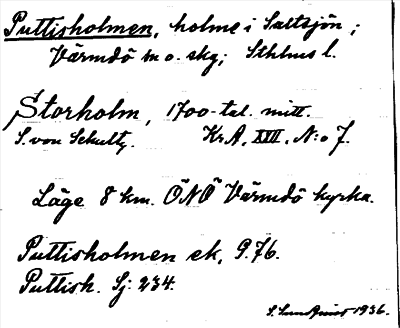 Puttisholmen, holme i Saltsjön;
Värmdö sn o. skg; Sthlms l.
Storholm, 1700-tal. mitt.
S. von Schultz. Kr.A. XVII. N:o 7.
Läge 8 km. ÖNÖ Värmdö kyrka.
Puttisholmen ek, 9.76.
Puttish. Sj: 234.
S. Sundquist 1936.